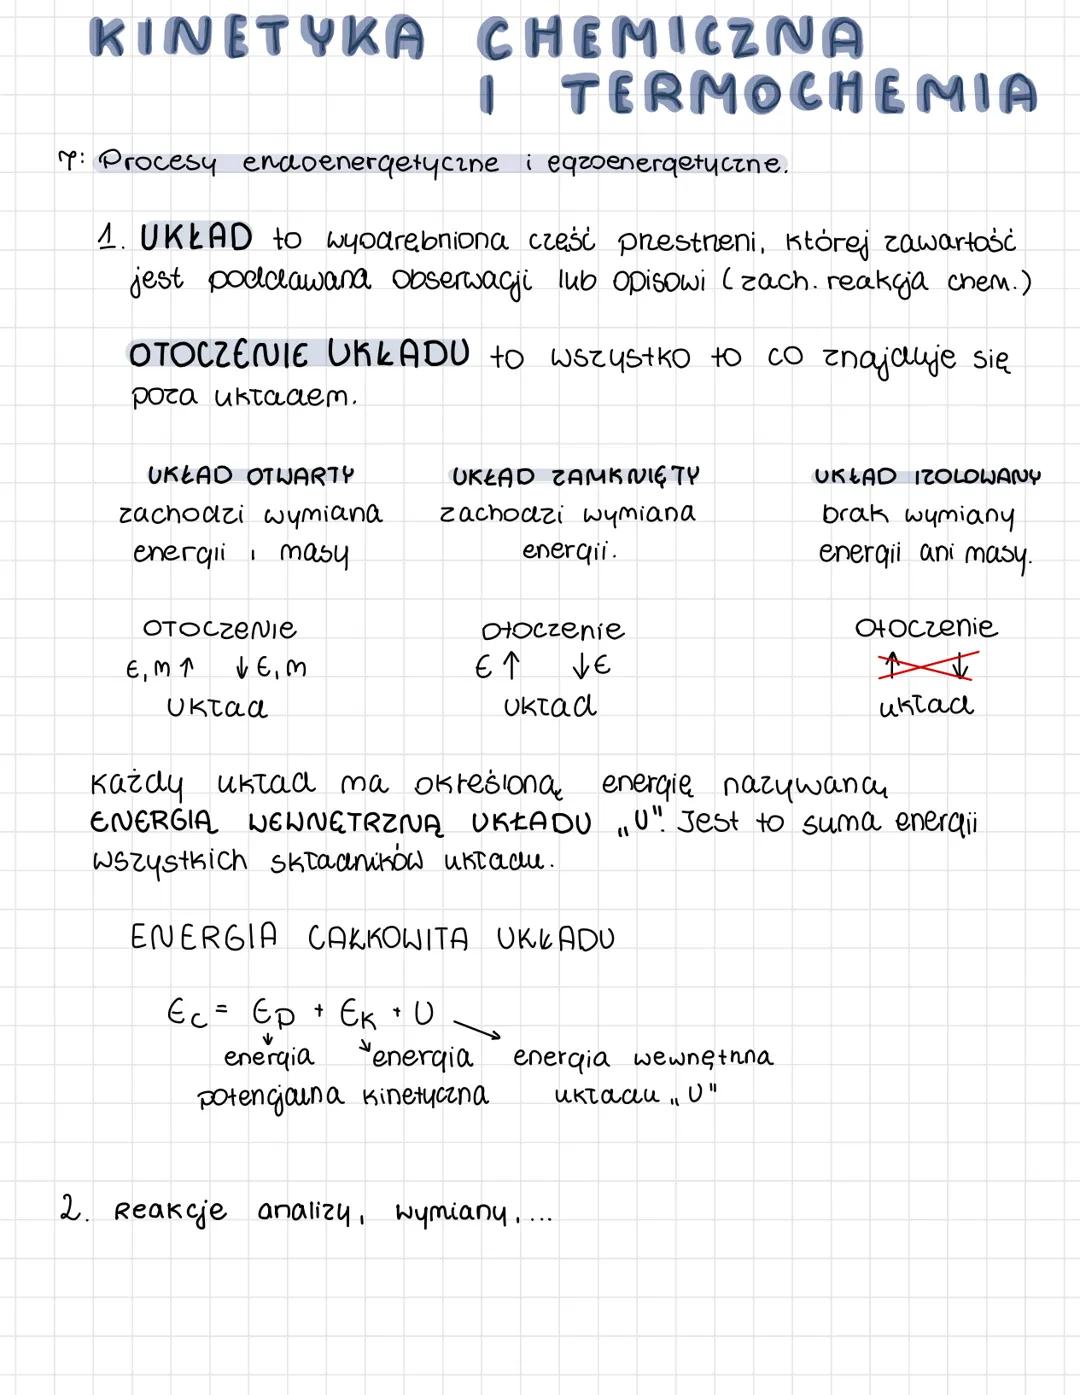 KINETYKA CHEMICZNA
I TERMOCHEMIA
T: Procesy endoenergetyczne i egzoenergetyczne.
1. UKŁAD to wyodrębniona część przestrzeni, której zawartość
jest poddawana obserwacji lub opisowi (zach. reakcja chem.)
OTOCZENIE UKŁADU to wszystko to co znajduje się
poza układem.
UKŁAD OTWARTY
zachodzi wymiana
energii i masy
UKŁAD ZAMKNIĘTY
zachodzi wymiana
energii.
UKŁAD IZOLOWANY
brak wymiany
energii ani masy.
OTOCZENIE
E, m ↑ ↓ E, m
układ
Otoczenie
E ↑ ↓ E
układ
Otoczenie
↑ ↓
układ
Każdy układ ma określoną energię nazywaną
ENERGIĄ WEWNĘTRZNĄ UKŁADU „U". Jest to suma energii
wszystkich składników układu.
ENERGIA CAŁKOWITA UKŁADU
Ec = Ep + Ek + U
energia potencjalna
energia kinetyczna
energia wewnętrzna
układu „U"
2. Reakcje analizy, wymiany, ...